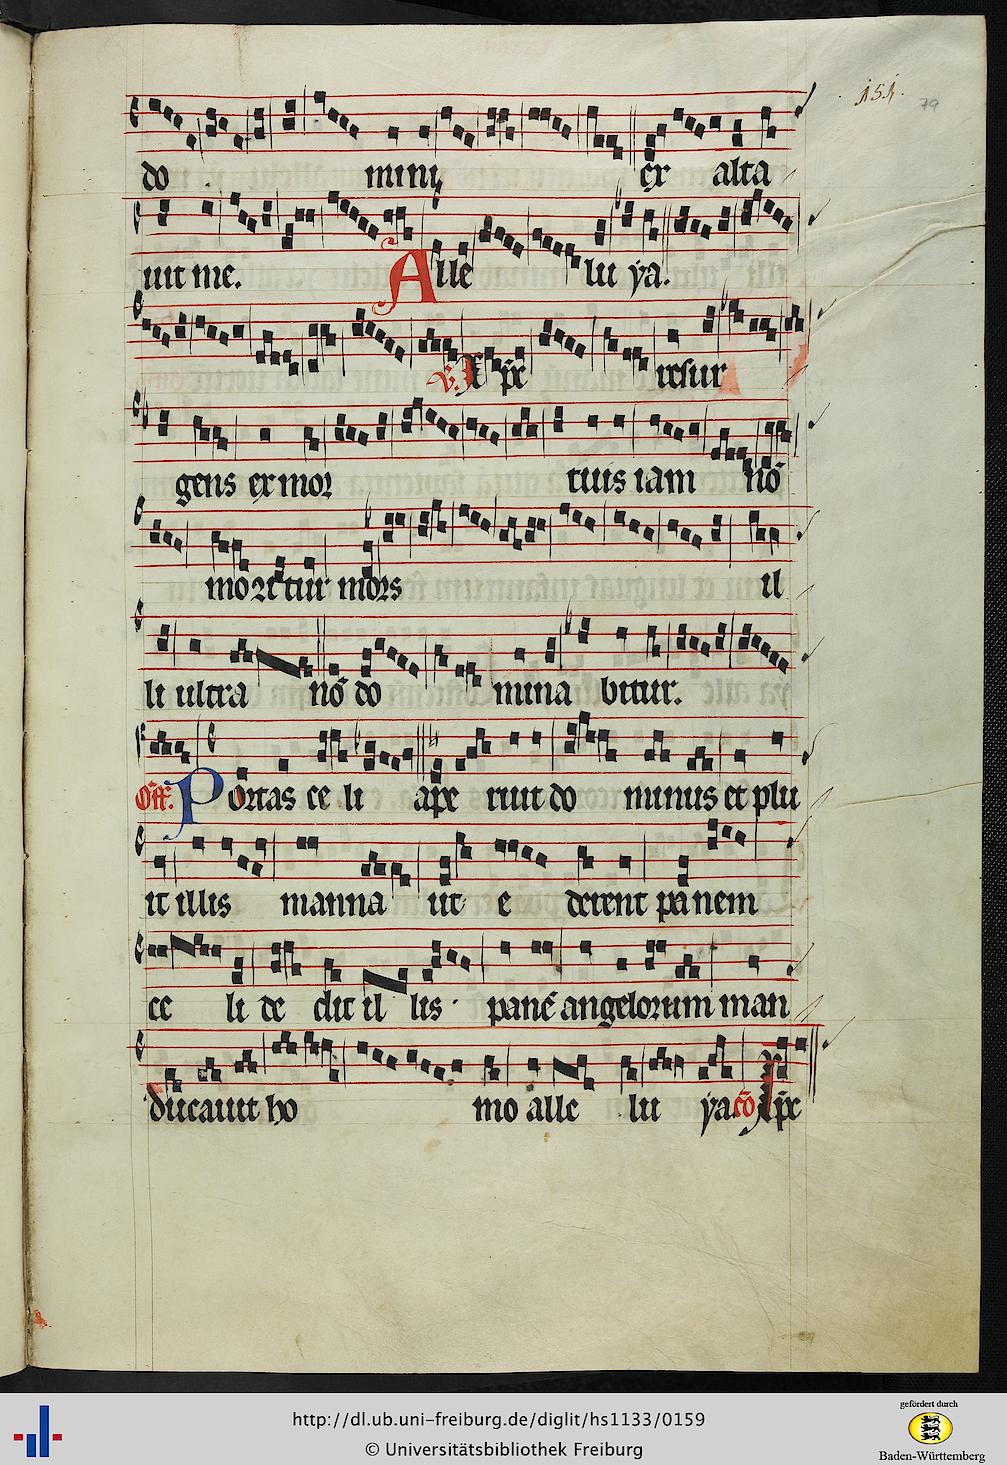 151. 79
do mini ex alta
uit me. Alle lu ya.
℣. Xpc resur
gens ex mor tuis iam nō
moritur mors il
li ultra nō do mina bitur.
Off. Portas ce li ape ruit do minus et plu
it illis manna ut e derent pa nem
ce li de dit il lis · panē angelorum man
ducauit ho mo alle lu ya. cō
http://dl.ub.uni-freiburg.de/diglit/hs1133/0159
© Universitätsbibliothek Freiburg
gefördert durch
Baden-Württemberg